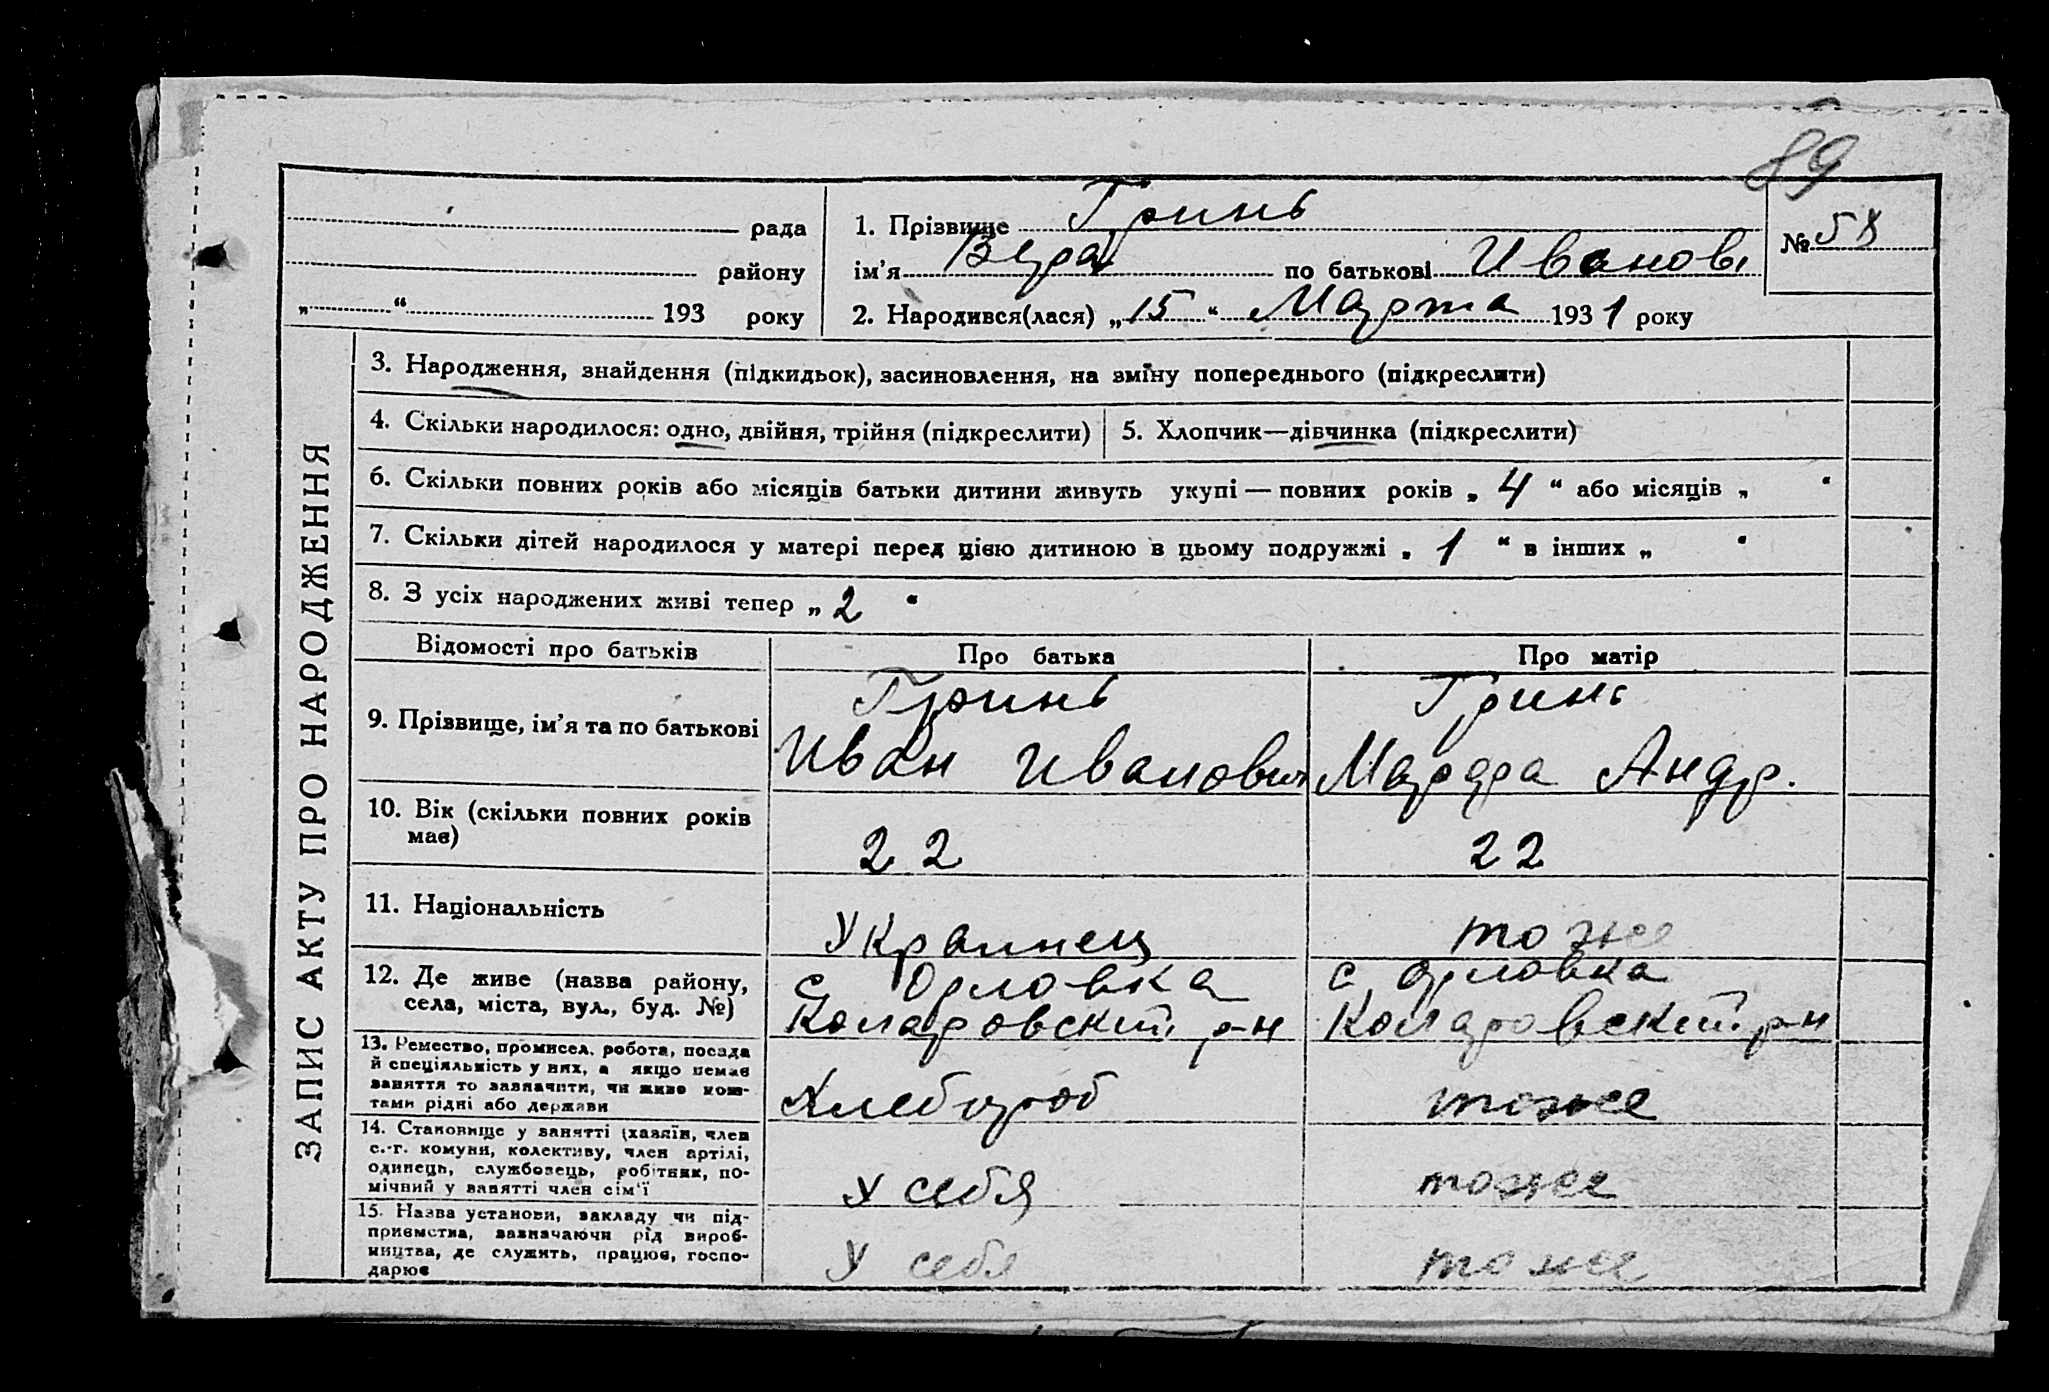 89
рада
району
„ “ 193 року
1. Прізвище Гринь
ім’я Вера по батькові Иванов.
№ 58
2. Народився(лася) „15“ Марта 1931 року
ЗАПИС АКТУ ПРО НАРОДЖЕННЯ
3. Народження, знайдення (підкидьок), засиновлення, на зміну попереднього (підкреслити)
4. Скільки народилося: одно, двійня, трійня (підкреслити) 5. Хлопчик—дівчинка (підкреслити)
6. Скільки повних років або місяців батьки дитини живуть укупі — повних років „ 4 “ або місяців „ “
7. Скільки дітей народилося у матері перед цією дитиною в цьому подружжі „ 1 “ в інших „ “
8. З усіх народжених живі тепер „ 2 “
Відомості про батьків Про батька Про матір
9. Прізвище, ім’я та по батькові
Гринь
Иван Иванович
Гринь
Андр.
10. Вік (скільки повних років
має)
22
22
11. Національність
Украинец
тоже
12. Де живе (назва району,
села, міста, вул., буд. №)
с Орловка
Коларовский р-н
с Орловка
Коларовский р-н
13. Ремество, промисел, робота, посада
й спеціяльність у них, а якщо немає
заняття то зазначити, чи живе кош-
тами рідні або держави
Хлебороб
тоже
14. Становище у занятті (хазяїн, член
с.-г. комуни, колективу, член артілі,
одинець, службовець, робітник, по-
мічний у занятті член сім’ї
у себя
тоже
15. Назва установи, закладу чи під-
приємства, зазначаючи рід вироб-
ництва, де служить, працює, госпо-
дарює
у себя
тоже